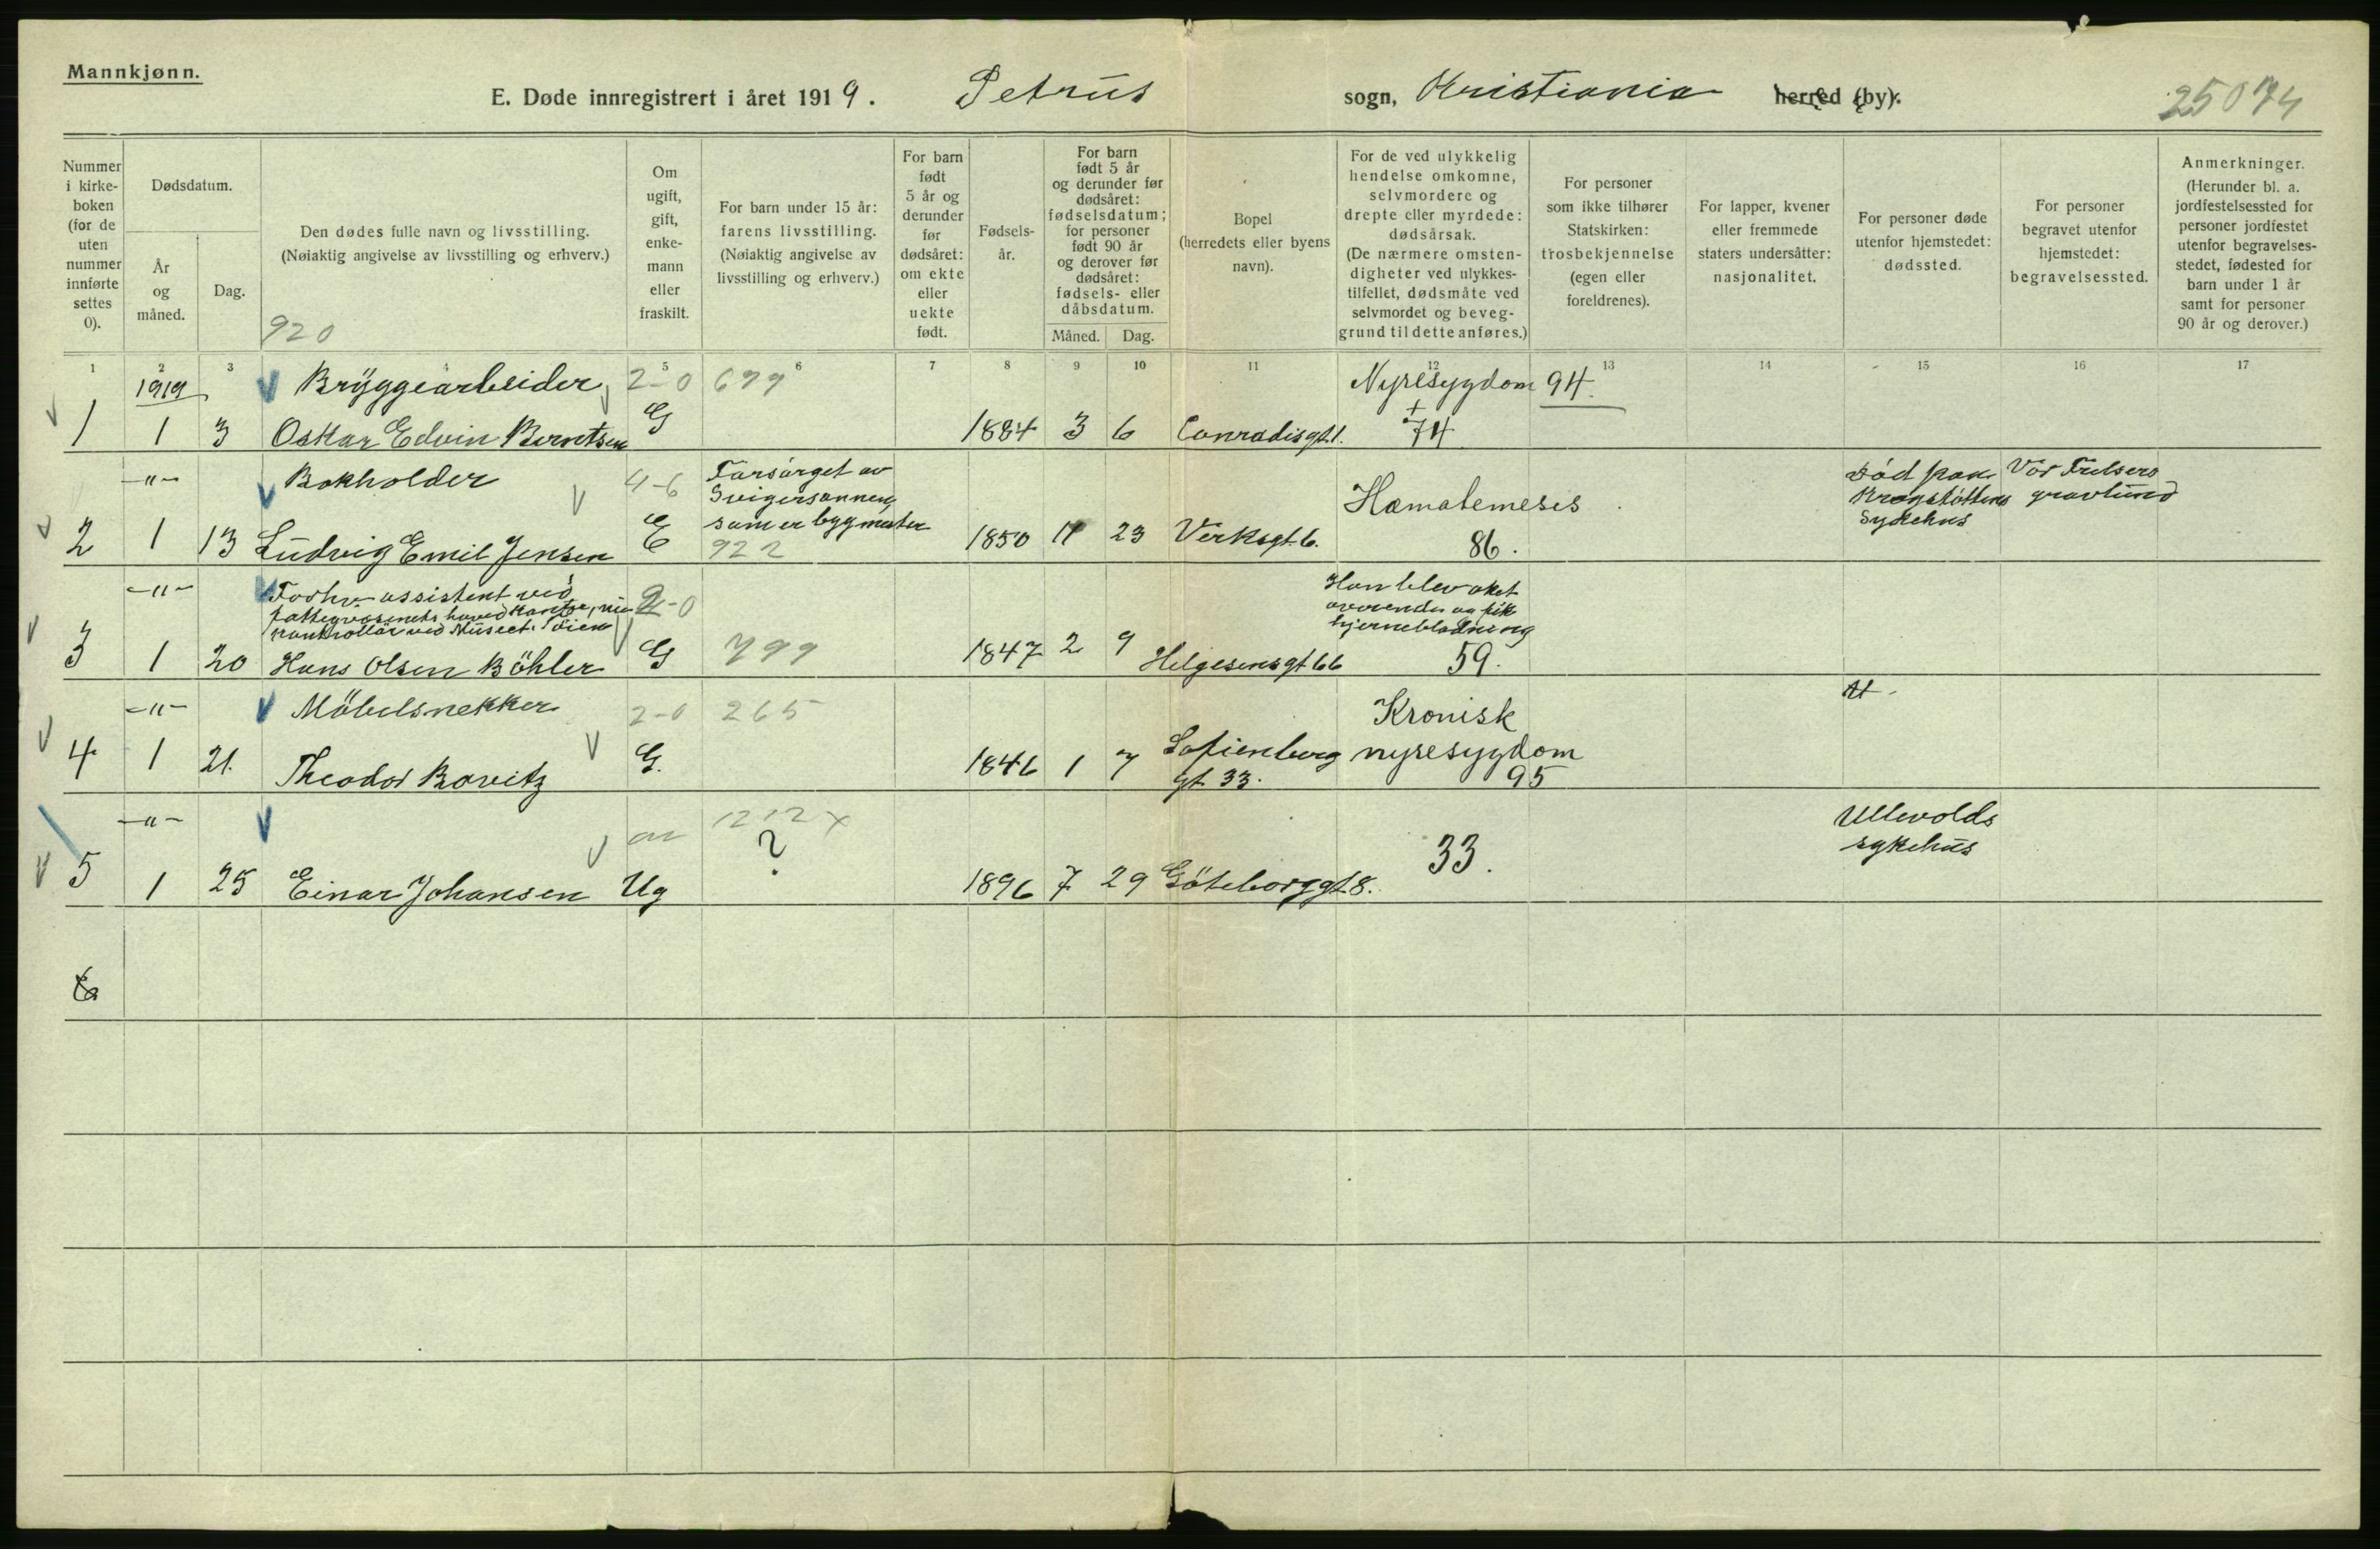 Mannkjønn.
E. Døde innregistrert i året 1919. Petrus sogn, Kristiania herred (by). 25074
Nummer i kirke- boken (for de uten nummer innførte settes 0).
Dødsdatum.
År og måned.
Dag.
Den dødes fulle navn og livsstilling.
(Nøiaktig angivelse av livsstilling og erhverv.)
920
Om ugift, gift, enke- mann eller fraskilt.
For barn under 15 år:
farens livsstilling.
(Nøiaktig angivelse av
livsstilling og erhverv.)
For barn født 5 år og derunder før dødsåret: om ekte eller uekte født.
Fødsels- år.
For barn født 5 år og derunder før dødsåret: fødselsdatum; for personer født 90 år og derover før dødsåret: fødsels- eller dåbsdatum.
Måned. Dag.
Bopel
(herredets eller byens
navn).
For de ved ulykkelig
hendelse omkomne,
selvmordere og
drepte eller myrdede:
dødsårsak.
(De nærmere omsten-
digheter ved ulykkes-
tilfellet, dødsmåte ved
selvmordet og beveg-
grund til dette anføres.)
For personer
som ikke tilhører
Statskirken:
trosbekjennelse
(egen eller
foreldrenes).
For lapper, kvener
eller fremmede
staters undersåtter:
nasjonalitet.
For personer døde
utenfor hjemstedet:
dødssted.
For personer
begravet utenfor
hjemstedet:
begravelsessted.
Anmerkninger.
(Herunder bl. a.
jordfestelsessted for
personer jordfestet
utenfor begravelses-
stedet, fødested for
barn under 1 år
samt for personer
90 år og derover.)
1 2 3 4 5 6 7 8 9 10 11 12 13 14 15 16 17
1919 Bryggearbeider 2-0 699 Nyresygdom 94.
1 1 3 Oskar Edvin Berntsen G 1884 3 6 Conradisgt 1. + 74
-"- Bokholder 4-6 Forsørget av
Svigersønnen,
som er bygmester
922
2 1 13 Ludvig Emil Jensen E 1850 11 23 Verksgt. 6. Hæmatemeses 86.
Død paa
Krogstøttens
Sykehus
Vor Frelsers
gravlund
-"- Forhv. assistent ved
fattigvæsenets hovedkontor, nu
kontrollør ved Museet. Tøien
2-0
3 1 20 Hans Olsen Böhler G 799 1847 2 9 Helgesensgt 66
Han blev aket
overende og fik
hjerneblødning
59.
-"- Möbelsnekker 2-0 265
4 1 21. Theodor Bovitz G. 1846 1 7 Sofienberg
gt. 33.
Kronisk
nyresygdom
95
-"- 1212 x
5 1 25 Einar Johansen Ug ? 1896 7 29 Göteborggt 8. 33.
Ullevolds
sykehus
6